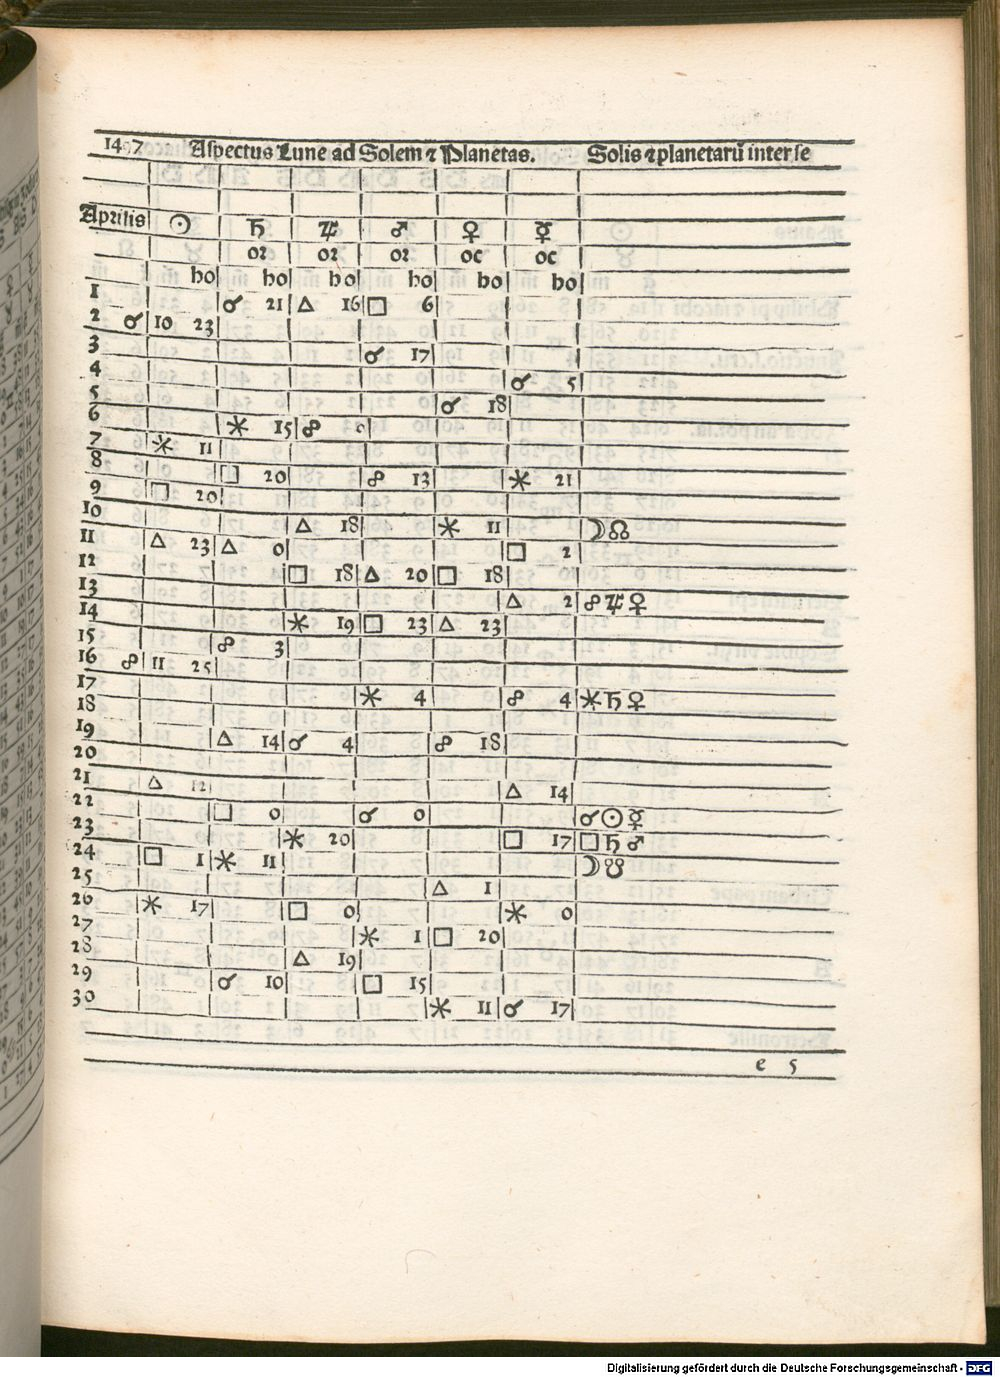 1497 Aspectus Lune ad Solem ⁊ Planetas. Solis ⁊ planetarū inter se
Aprilis ☉ ♄ ♃ ♂ ♀ ☿
oꝛ oꝛ oꝛ oc oc
ho ho ho ho ho ho
1 ☌ 21 △ 16 □ 6
2 ☌ 10 23
3 ☌ 17
4 ☌ 5
5 ☌ 18
6 ⚹ 15 ☍
7 ⚹ 11
8 □ 20 ☍ 13 ⚹ 21
9 □ 20
10 △ 18 ⚹ 11 ☽☊
11 △ 23 △ 0 □ 2
12 □ 18 △ 20 □ 18
13 △ 2 ☍♃♀
14 ⚹ 19 □ 23 △ 23
15 ☍ 3
16 ☍ 11 25
17 ⚹ 4 ☍ 4 ⚹♄♀
18
19 △ 14 ☌ 4 ☍ 18
20
21 △ 12 △ 14
22 □ 0 ☌ 0 ☌☉☿
23 ⚹ 20 □ 17 □♄♂
24 □ 1 ⚹ 11 ☽☋
25 △ 1
26 ⚹ 17 □ 0 ⚹ 0
27 ⚹ 1 □ 20
28 △ 19
29 ☌ 10 □ 15
30 ⚹ 11 ☌ 17
e 5
Digitalisierung gefördert durch die Deutsche Forschungsgemeinschaft - DFG